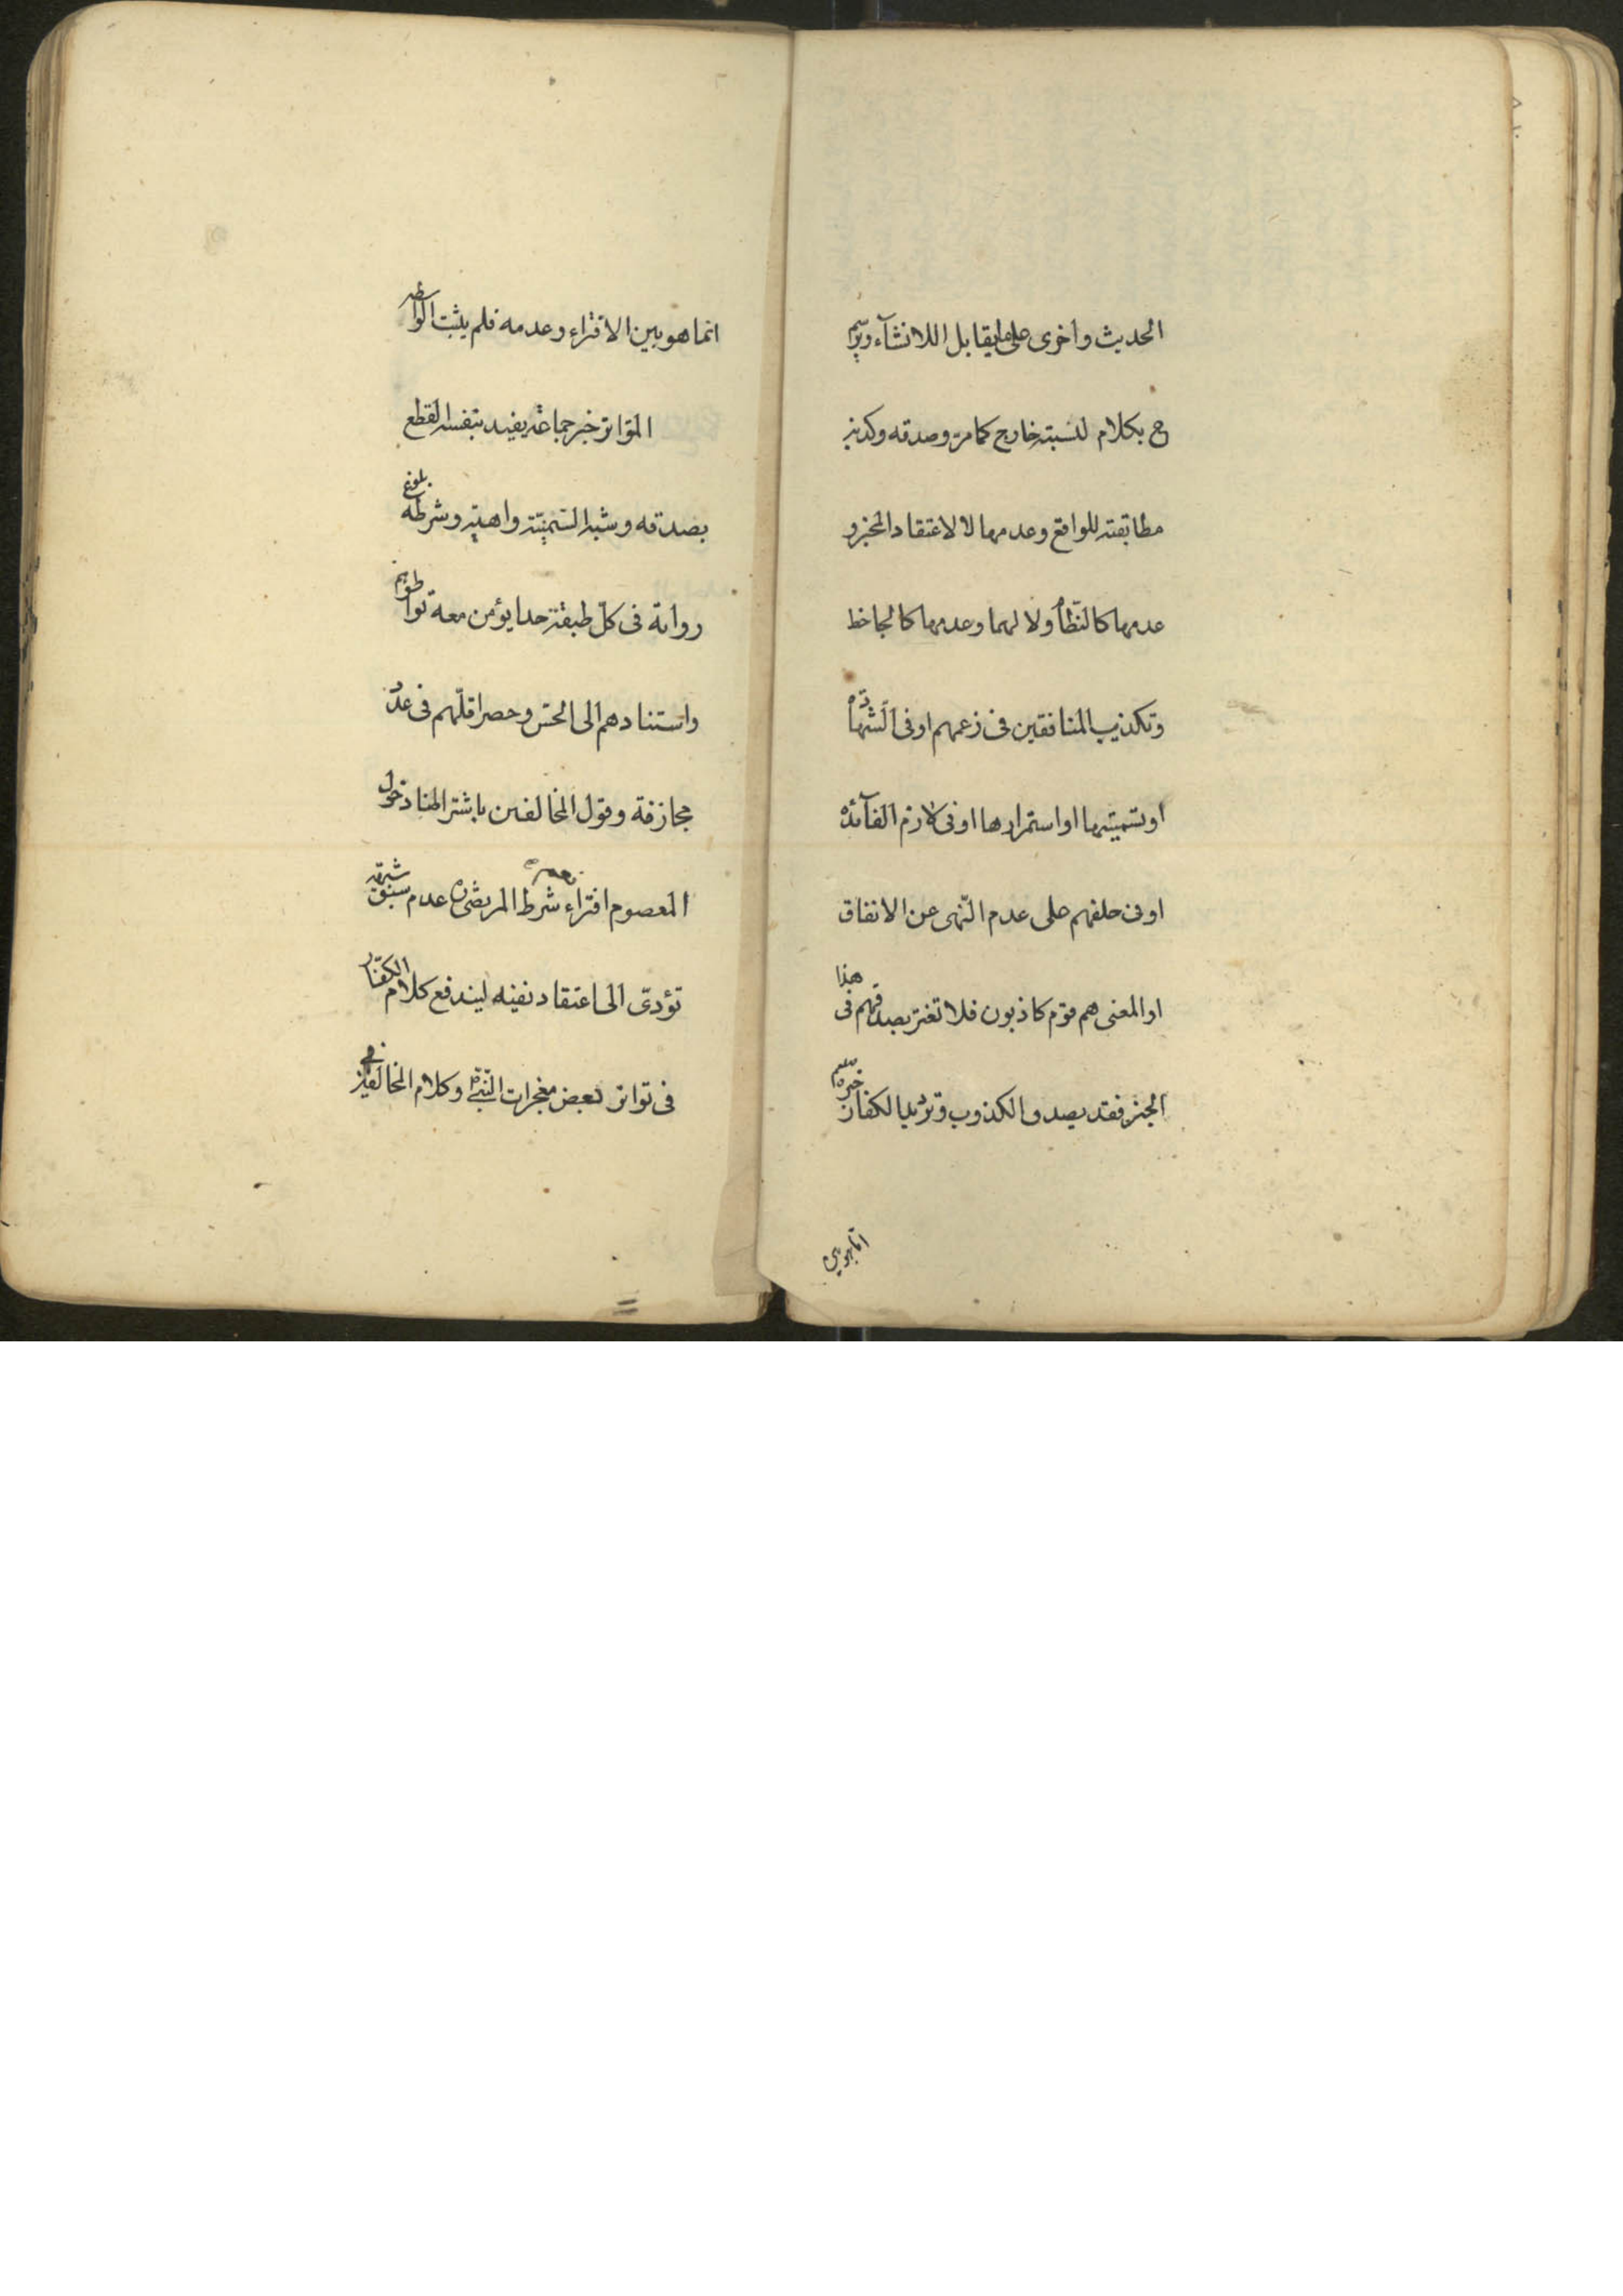 الحديث واخرى على ما يقابل اللانشآء ويرسم
ح بكلام لنسبته خارج كما مر وصدقه وكذبه
مطابقته للواقع وعدمها لا لاعتقاد المخبر و
عدمها كالنظام ولا لهما وعدمها كالجاحظ
وتكذيب المنافقين فى زعمهم اوفى الشهادة
او تسميتها او استمرارها اوفى لازم الفآئدة
اوفى حلفهم على عدم النهى عن الانفاق
او المعنى هم قوم كاذبون فلا تغتر بصدقهم فى هذا
الخبر فقد يصدق الكذوب وترديد الكفار خبره
انما هو بين
انما هو بين الافتراء وعدمه فلم يثبت الواسطه
المتواتر خبر جماعة يفيد بنفسه القطع
بصدقه وشبه السمنيّة واهية وشرطه بلوغ
رواته فى كلّ طبقة حدا يؤمن معه تواطؤهم
واستنادهم الى الحس وحصر اقلّهم فى عدد
مجازفة وقول المخالفين باشتراطنا دخول
المعصوم افتراء نعم شرط المرتضى عدم سبق شبهة
تؤدى الى اعتقاد نفيه ليندفع كلام الكفار
فى تواتر بعض معجزات النبى وكلام المخالفين فى